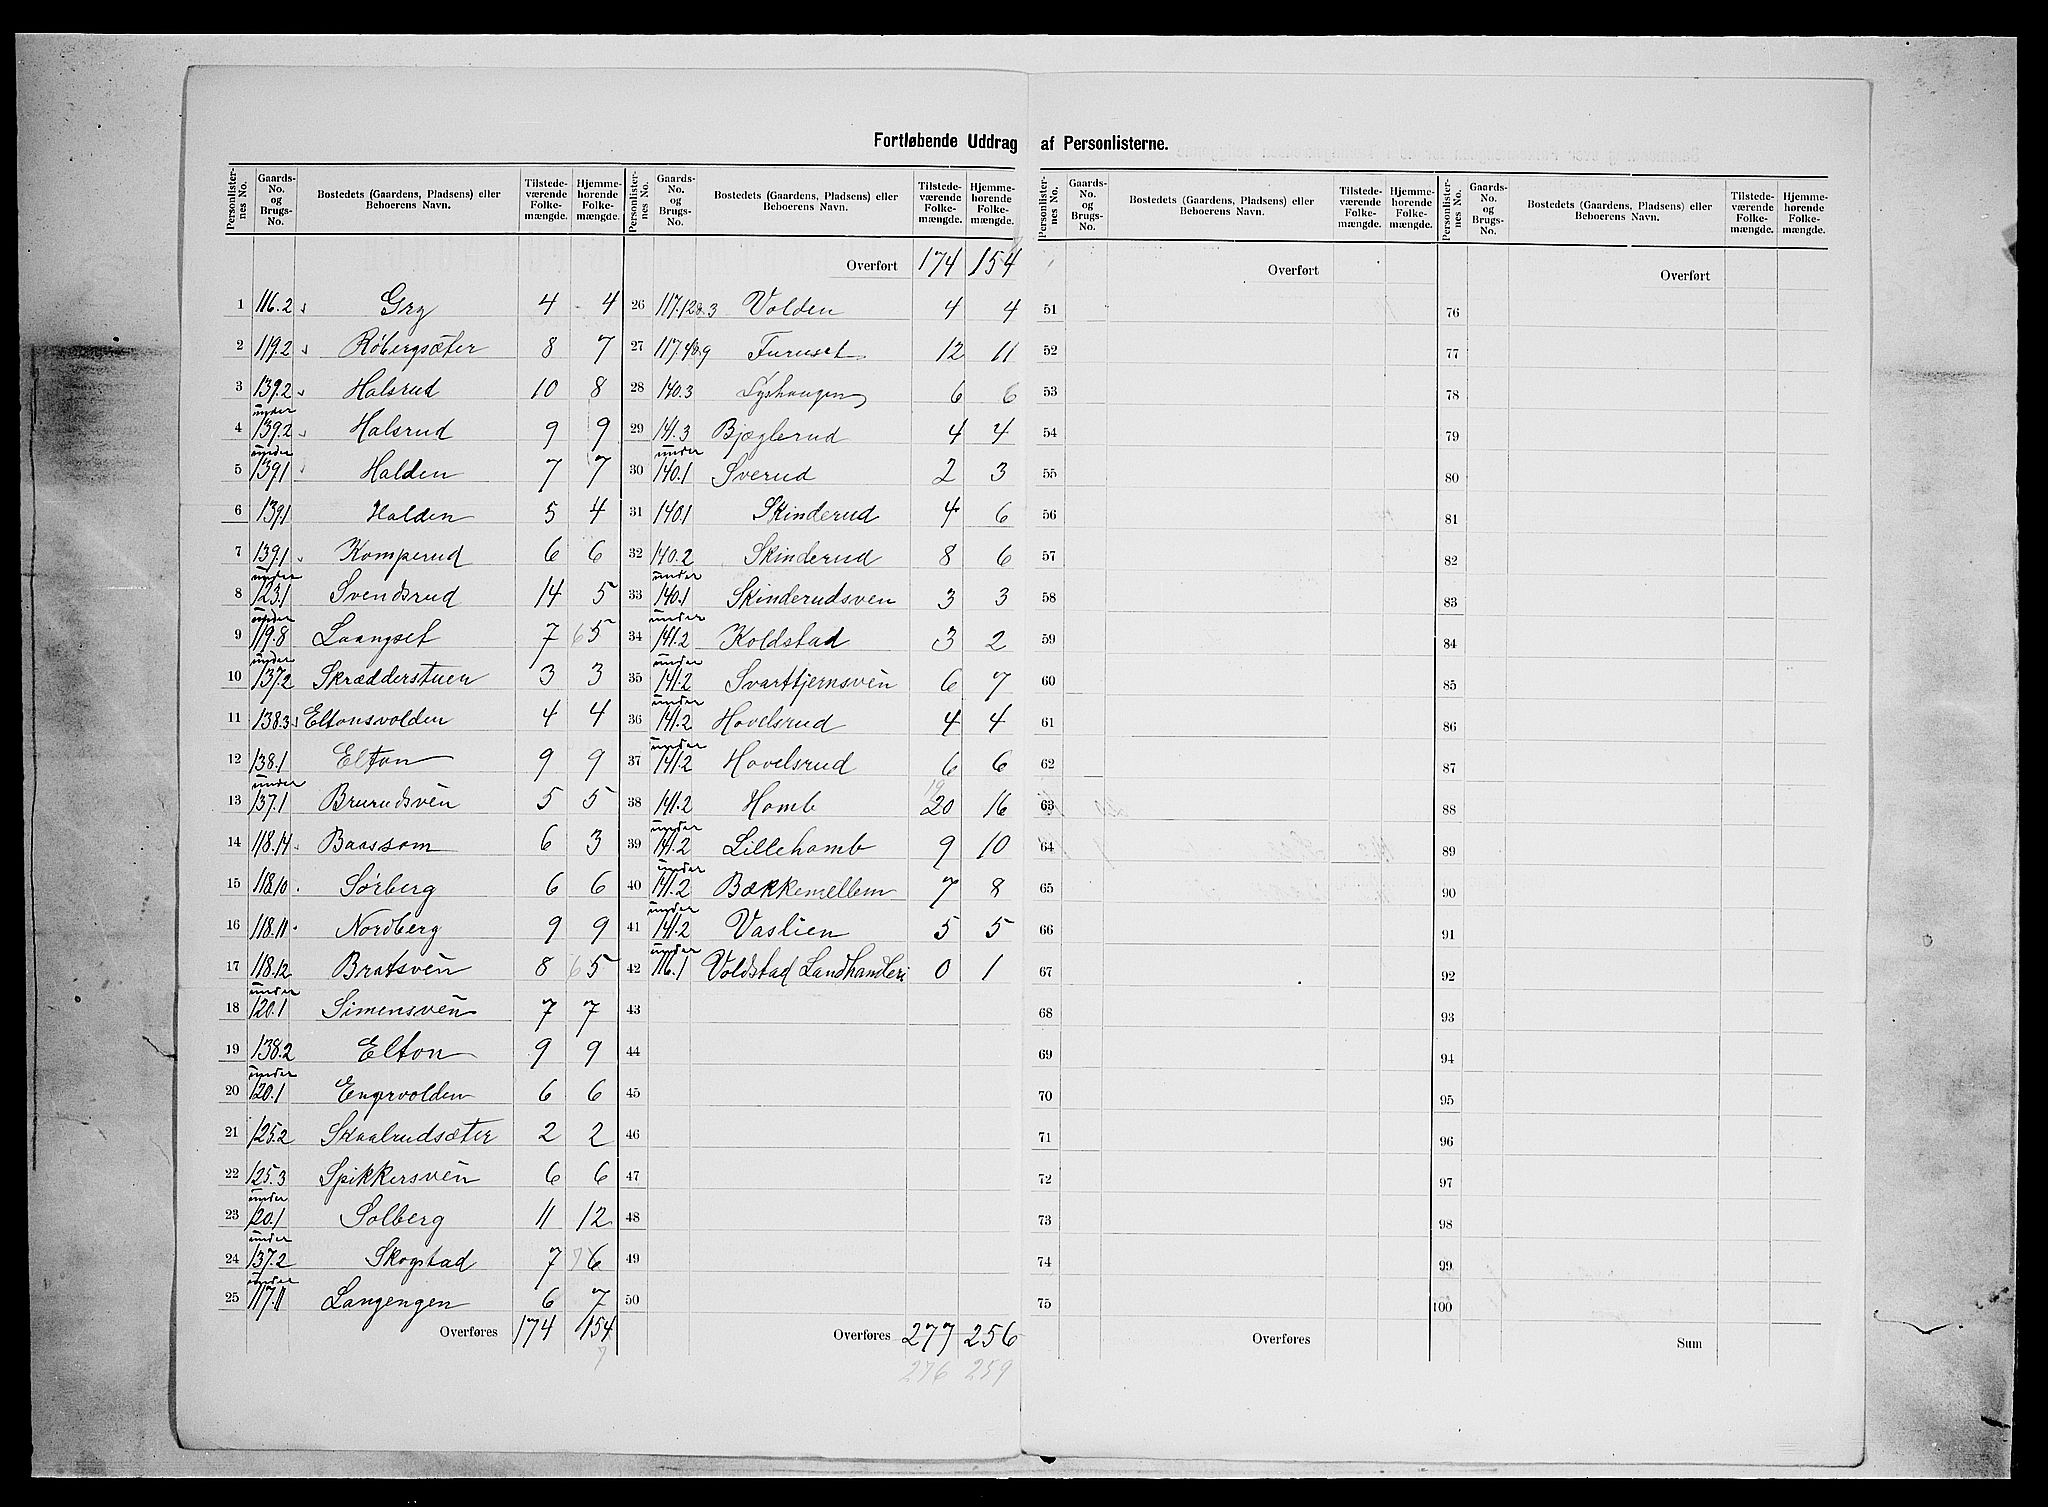 Fortløbende Uddrag af Personlisterne.
Personlister-nes No. | Gaards-No. og Brugs-No. | Bostedets (Gaardens, Pladsens) eller Beboerens Navn. | Tilstede-værende Folke-mængde. | Hjemme-hørende Folke-mængde.
1 116.2 Gry 4 4
2 119.2 Röbergsæter 8 7
3 139.2 Halsrud 10 8
4 under 139.2 Halsrud 9 9
5 under 139.1 Halden 7 7
6 139.1 Halden 5 4
7 139.1 Komperud 6 6
8 under 123.1 Svendsrud 14 5
9 under 119.8 Laangset 7 6 5
10 under 137.2 Skrædderstuen 3 3
11 138.3 Eltonsvolden 4 4
12 138.1 Elton 9 9
13 under 137.1 Brurudsven 5 5
14 118.14 Baassom 6 3
15 118.10 Sörberg 6 6
16 118.11 Nordberg 9 9
17 118.12 Bratsven 8 6 5
18 under 120.1 Simensven 7 7
19 138.2 Elton 9 9
20 under 120.1 Engervolden 6 6
21 125.2 Skaalrudsæter 2 2
22 125.3 Spikkersven 6 6
23 under 120.1 Solberg 11 12
24 under 137.2 Skogstad 7 7 6
25 under 117.11 Langengen 6 7
Overføres 174 154
7
Personlister-nes No. | Gaards-No. og Brugs-No. | Bostedets (Gaardens, Pladsens) eller Beboerens Navn. | Tilstede-værende Folke-mængde. | Hjemme-hørende Folke-mængde.
Overført 174 154
26 117.1 2 & 3 Volden 4 4
27 117.4 & 9 Furuset 12 11
28 140.3 Lyshaugen 6 6
29 141.3 Bjæglerud 4 4
30 under 140.1 Sverud 2 3
31 140.1 Skinderud 4 6
32 140.2 Skinderud 8 6
33 under 140.1 Skinderudsven 3 3
34 under 141.2 Koldstad 3 2
35 under 141.2 Svarttjernsven 6 7
36 under 141.2 Hovelsrud 4 4
37 under 141.2 Hovelsrud 6 6
38 141.2 Homb 19 20 16
39 under 141.2 Lillehomb 9 10
40 under 141.2 Bækkemellem 7 8
41 under 141.2 Vaslien 5 5
42 under 116.1 Voldstad Landhandleri 0 1
43
44
45
46
47
48
49
50
Overføres 277 256
276 259
Personlister-nes No. | Gaards-No. og Brugs-No. | Bostedets (Gaardens, Pladsens) eller Beboerens Navn. | Tilstede-værende Folke-mængde. | Hjemme-hørende Folke-mængde.
Overført
51
52
53
54
55
56
57
58
59
60
61
62
63
64
65
66
67
68
69
70
71
72
73
74
75
Overføres
Personlister-nes No. | Gaards-No. og Brugs-No. | Bostedets (Gaardens, Pladsens) eller Beboerens Navn. | Tilstede-værende Folke-mængde. | Hjemme-hørende Folke-mængde.
Overført
76
77
78
79
80
81
82
83
84
85
86
87
88
89
90
91
92
93
94
95
96
97
98
99
100
Sum